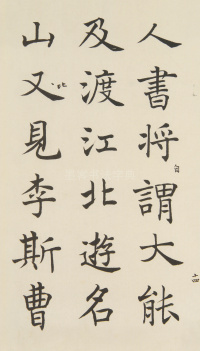 人書将謂大能
及渡江北遊名
山又見李斯曹